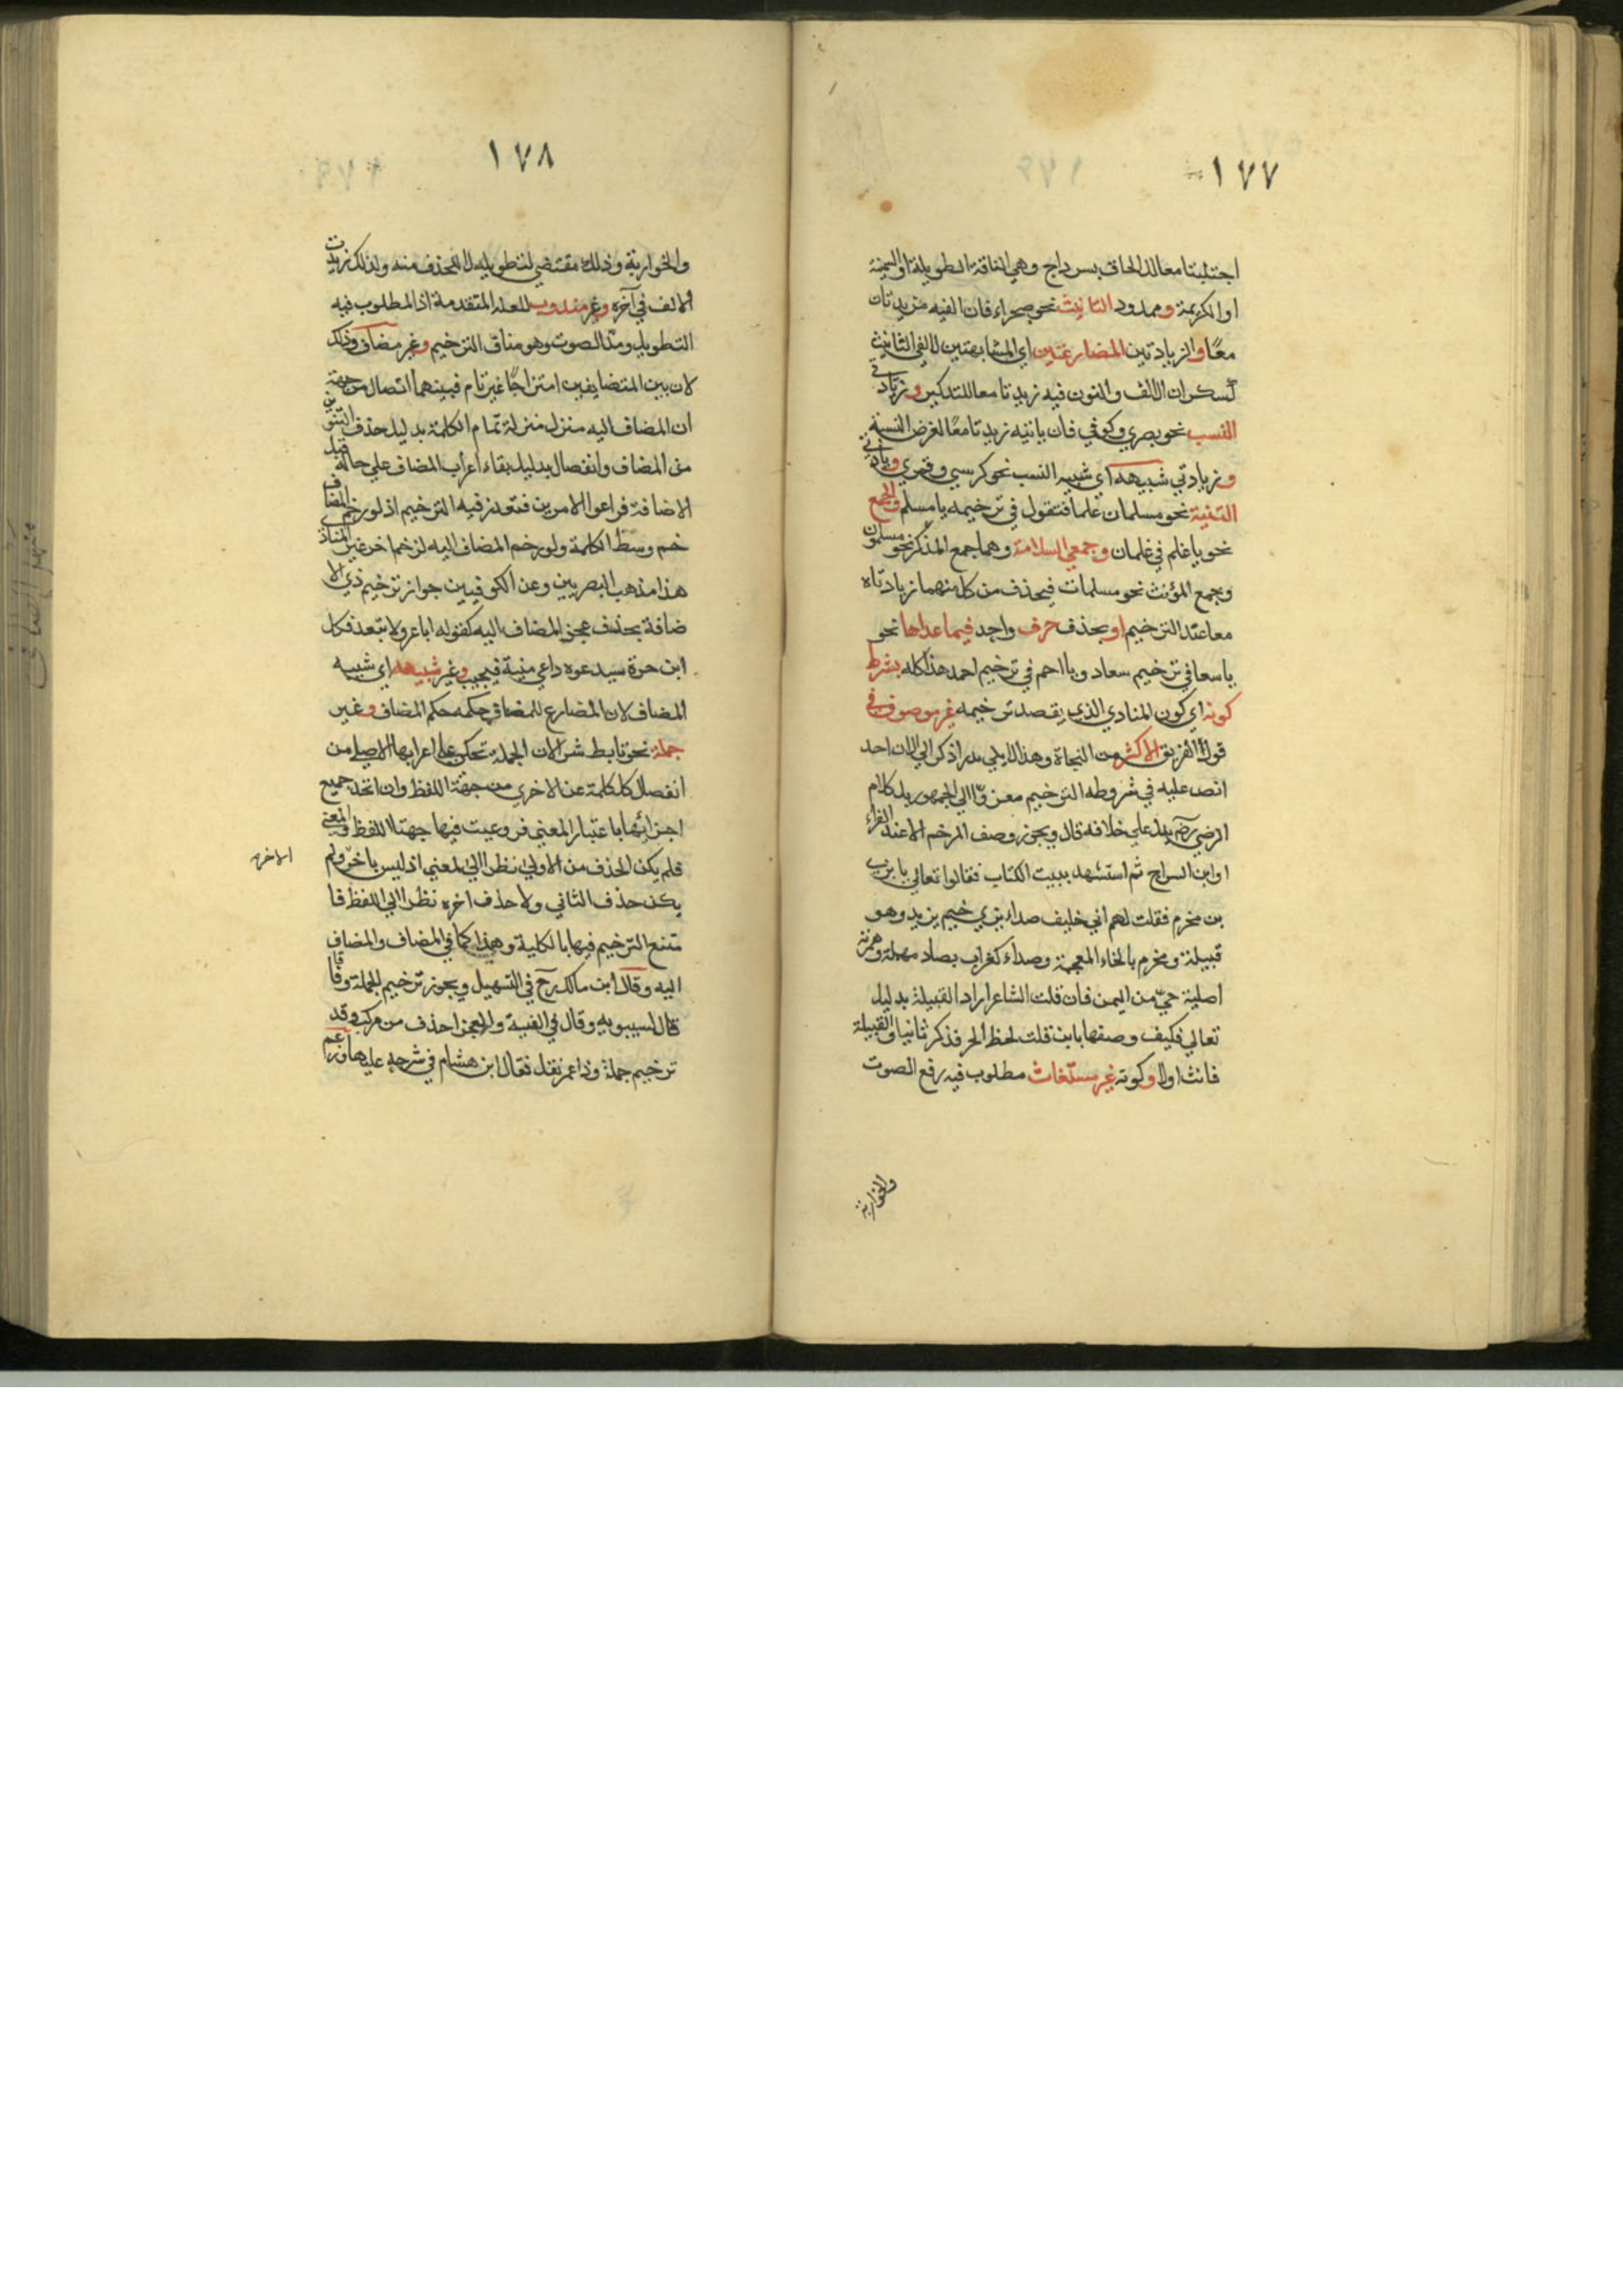 ١٧٧
اجتلبتا معا للالحاق بسرداج وهي الناقة الطويلة او السمينة
او الكريمة وممدود التانيث نحو صحراء فان الفيه مزيدتان
معًا والزيادتين المضارعتين اي المشابهتين لالفي التانيث
كسكران الالف والنون فيه زيدتا معا للتذكير وزيادتي
النسب نحو بصري وكوفي فان يائيه زيدتا معًا لغرض النسبة
وزيادتي شبيهه اي شبيه النسب نحو كرسي وقمري وزيادتي
التثنية نحو مسلمان علما فتقول في ترخيمه يا مسلم والجمع
نحو يا غلم في غلمان وجمعي السلامة وهما جمع المذكر نحو مسلمون
وجمع المؤنث نحو مسلمات فيحذف من كل منهما زيادتاه
معا عند الترخيم او بحذف حرف واحد فيما عداها نحو
يا سعا في ترخيم سعاد ويا احم في ترخيم احمد هذا كله بشرط
كونه اي كون المنادي الذي يقصد ترخيمه غير موصوف في
قول الفريق الاكثر من النحاة وهذا لا يلي لم ار اذكر الي الان احد
انص عليه في شروطه الترخيم معزوّا الي الجمهور بل كلام
الرضي رضم يدل علي خلافه قال ويجوز وصف المرخم الا عند الفراء
او ابن السراج ثم استشهد ببيت الكتاب فقالوا تعالي يا يزي
بن مخرم فقلت لهم اني خليف صداء يزي خيم يزيد وهو
قبيلة ومخرم بالخاء المعجمة وصداء كغراب بصاد مهملة وهمزة
اصلية حيّ من اليمن فان قلت الشاعر اراد القبيلة بدليل
تعالي فكيف وصفها بابن قلت لحظ الحر فذكر ثانيا والقبيلة
فانث اولا وكونه غير مستغاث مطلوب فيه رفع الصوت
والخوارية
١٧٨
والخوارية وذلك مقتضي لتطويله لا للحذف منه ولذلك زيدت
الالف في آخره وغير مندوب للعلة المتقدمة اذ المطلوب فيه
التطويل ومدّ الصوت وهو مناف الترخيم وغير مضاف وذلك
لان بين المتضايفين امتزاجًا غير تام فبينهما اتصال من جهة
ان المضاف اليه منزل منزلة تمام الكلمة بدليل حذف التنوين
من المضاف وانفصال بدليل بقاء اعراب المضاف علي حاله قبل
الاضافة فراعوا الامرين فتعذر فيه الترخيم اذ لو رخم المضاف
خم وسط الكلمة ولو رخم المضاف اليه لرخم اخر غير المناد
هذا مذهب البصريين وعن الكوفيين جواز ترخيم ذي الا
ضافة بحذف عجز المضاف اليه كقوله ابا عرو لا تبعد فكل
ابن حرة سيدعوه داعي منية فيجيب وغير شبيهه اي شبيه
المضاف لان المضارع للمضاف حكمه حكم المضاف وغير
جملة نحو تابط شرا لان الجملة تحكي علي اعرابها الاصلي من
انفصال كل كلمة عن الاخري من جهة اللفظ وان اتحد جميع
اجزائها باعتبار المعني فروعيت فيها جهتا اللفظ والمعني
فلم يكن الحذف من الاولي نظرا الي المعني اذ ليس باخر ولم
الاخره
يكن حذف الثاني ولا حذف اخره نظرا الي اللفظ فا
متنع الترخيم فيها بالكلية وهذا كما في المضاف والمضاف
اليه وقال ابن مالك رح في التسهيل ويجوز ترخيم الجملة وفاقا
قال لسيبويه وقال في الفية والعجز احذف من مركب وقد
ترخيم جملة وذا عمر نقل فقال ابن هشام في شرحه عليها وزعم